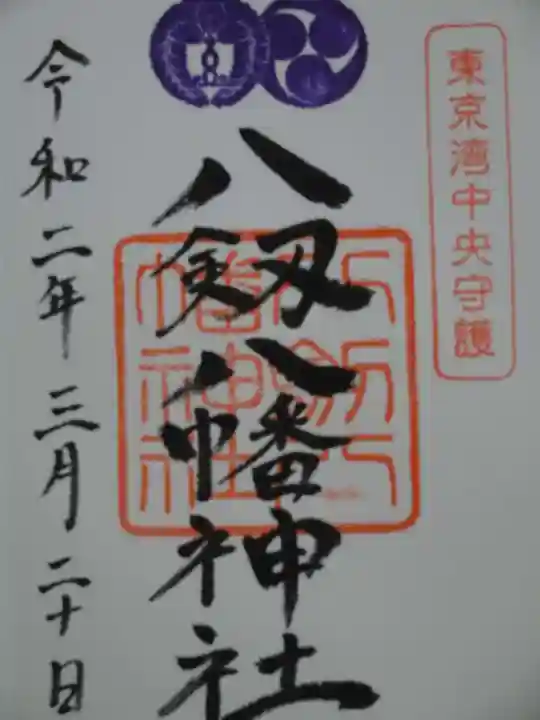 東京湾中央守護
八剱八幡神社
八剱八幡神社
令和二年三月二十日